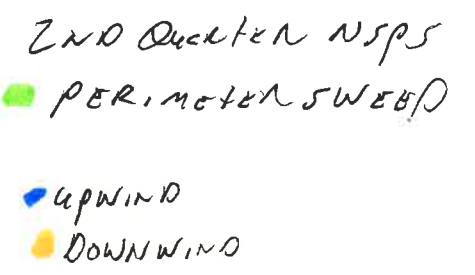 2ND QUARTER NSPS
PERIMETER SWEEP
UPWIND
DOWNWIND